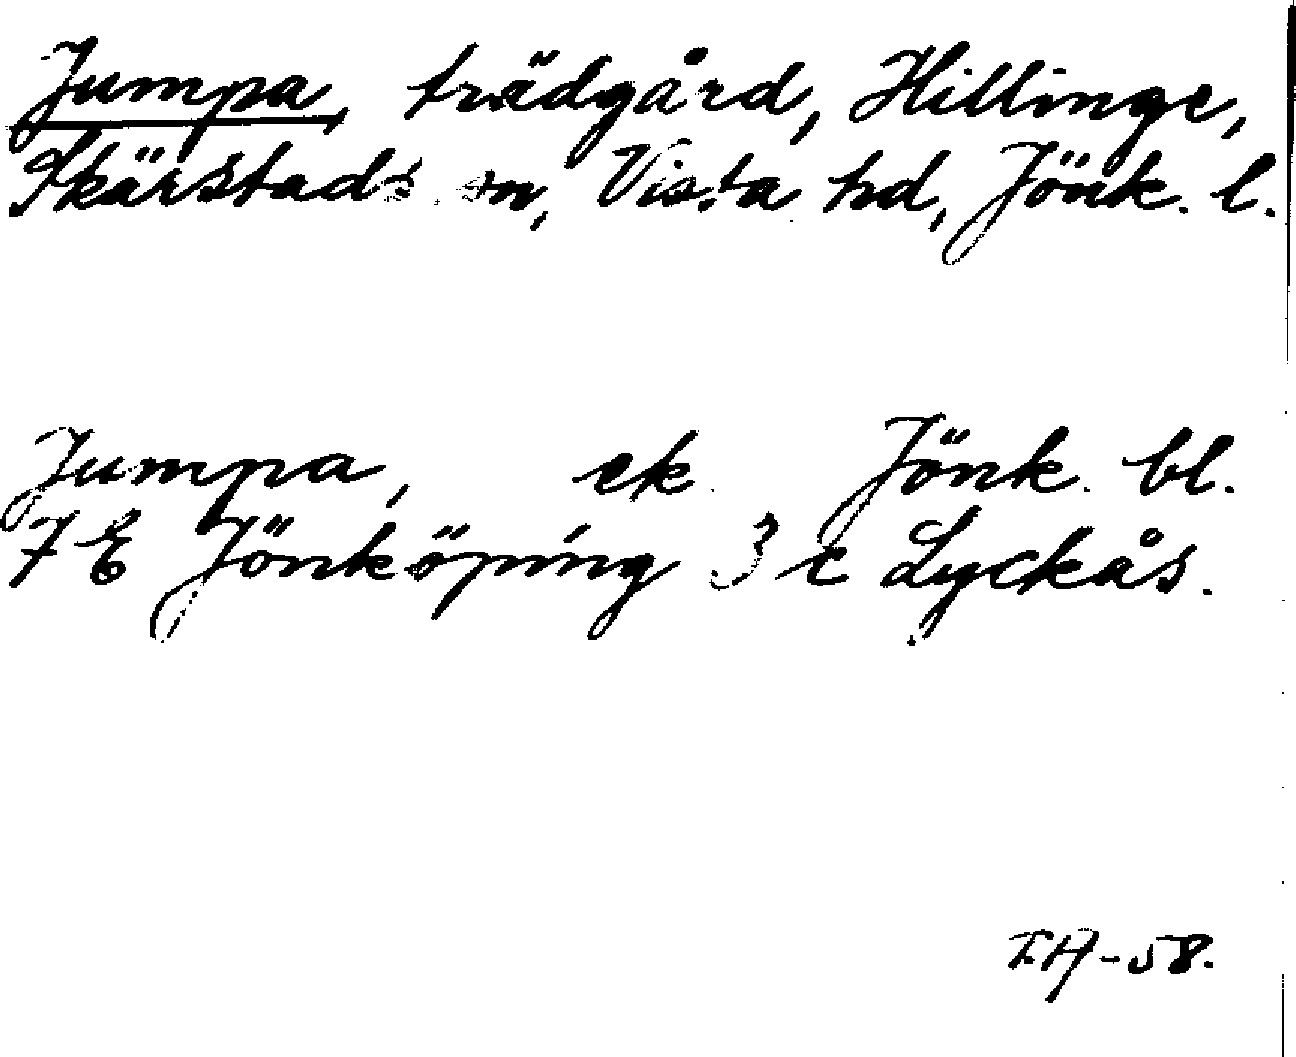 Jumpa, trädgård, Hillinge,
Skärstads sn, Vista hd, Jönk. l.
Jumpa, ek. Jönk. bl.
7 E Jönköping 3 c Lyckås.
T.H-58.